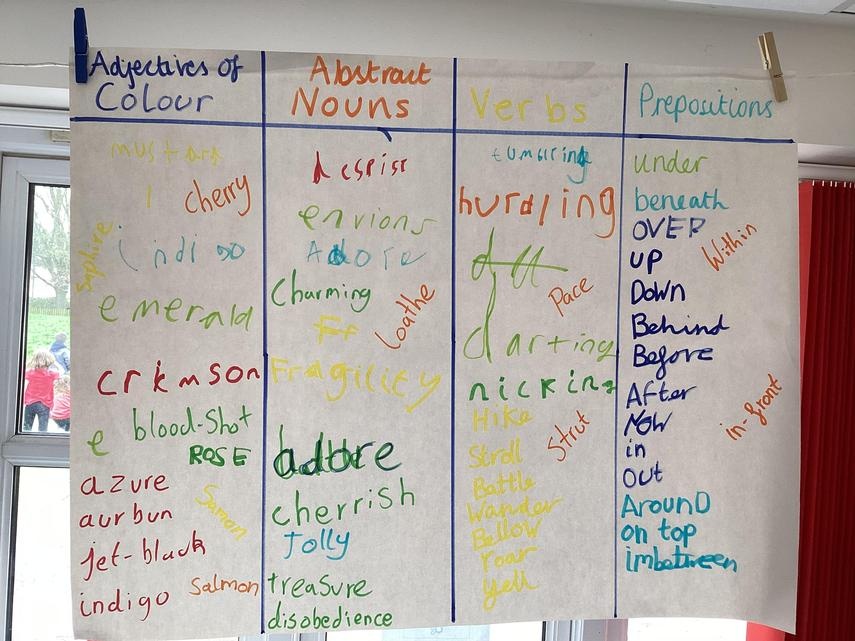 Adjectives of
Colour
mustard
cherry
Saphire
indigo
emerald
crkmson
e blood-shot
ROSE
azure
Samon
aurbun
jet-black
Salmon
indigo
Abstract
Nouns
despise
envions
Adore
Charming
Loathe
Fragility
adore
cherrish
Jolly
treasure
disobedience
Verbs
hurdling
Pace
darting
nicking
Hike
Strut
Stroll
Battle
Wander
Bellow
roar
yell
Prepositions
under
beneath
OVER
Within
UP
Down
Behind
Before
After
in-front
NOW
in
OUT
Around
on top
imbetween